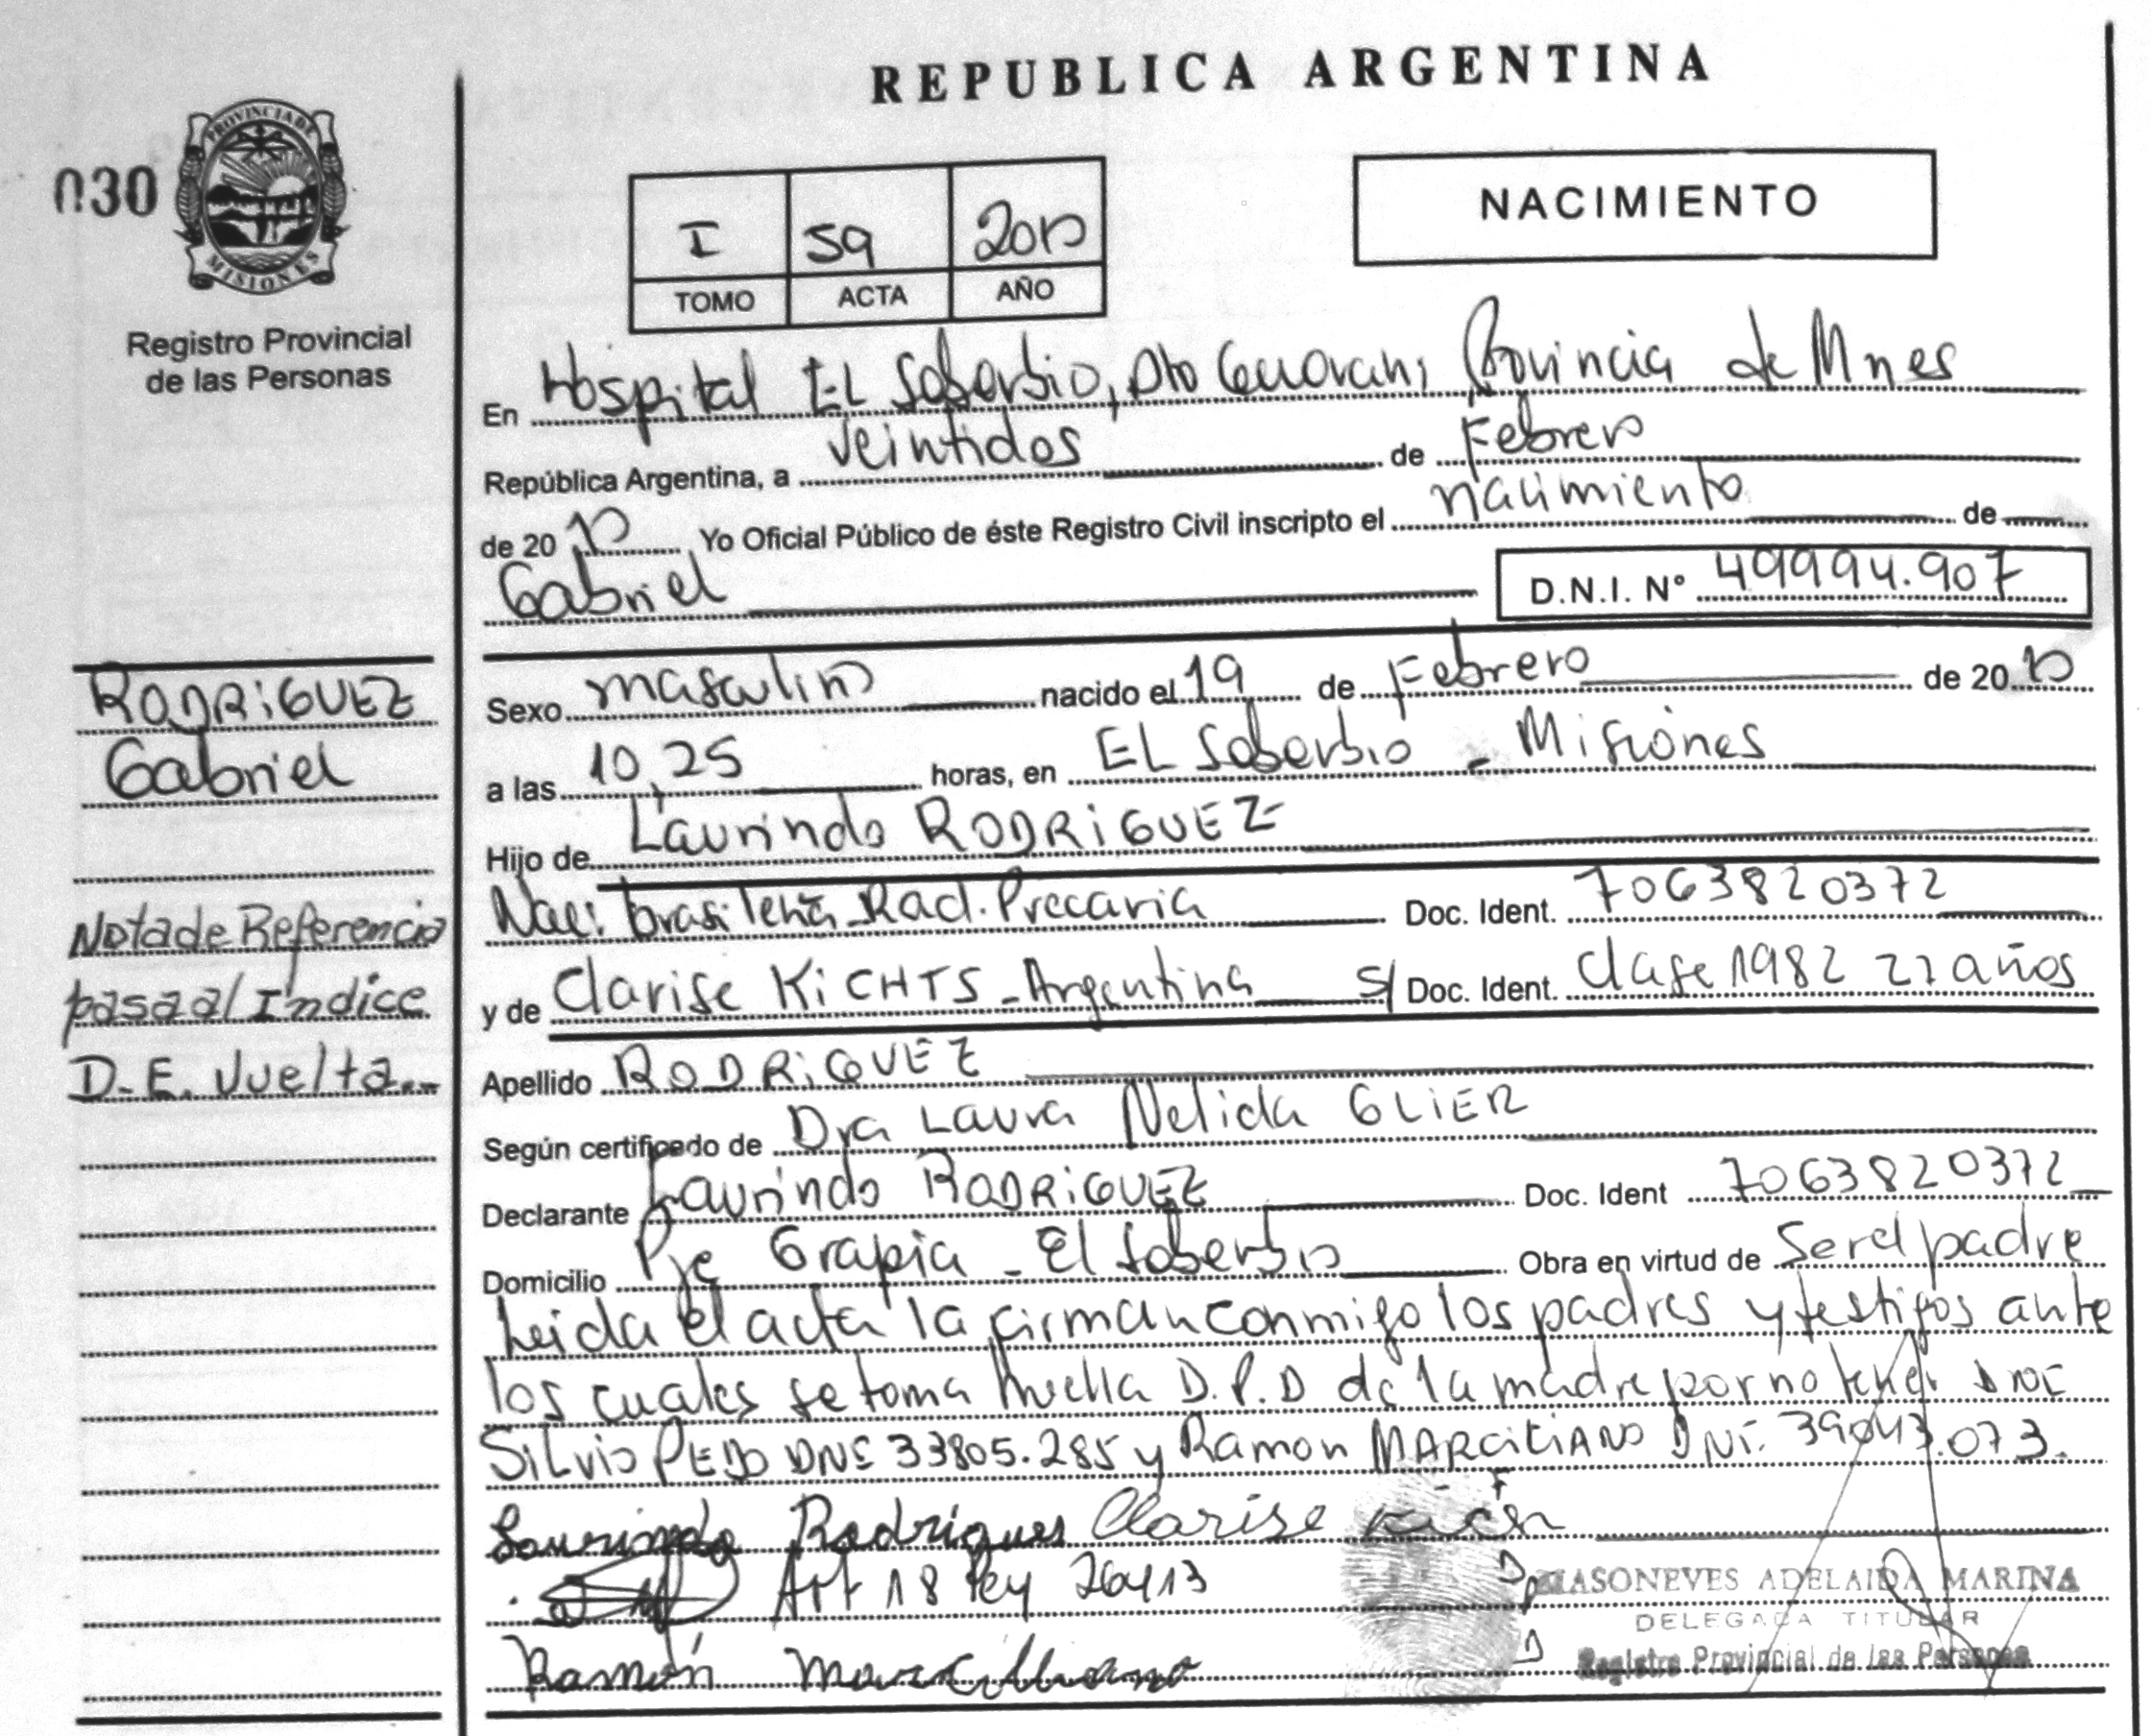 REPUBLICA ARGENTINA
030
PROVINCIA DE
MISIONES
Registro Provincial
de las Personas
I 59 2010
TOMO ACTA AÑO
NACIMIENTO
En Hospital EL Soberbio, Dto Guarani Provincia de Mnes
República Argentina, a veintidos de Febrero
de 2010 Yo Oficial Público de éste Registro Civil inscripto el nacimiento de
Gabriel D.N.I. Nº 49994.907
RODRiGUEZ
Gabriel
Nota de Referencia
pasa al Indice
D.E. Vuelta
Sexo masculino nacido el 19 de Febrero de 2010
a las 10,25 horas, en EL Soberbio - Misiones
Hijo de Laurindo RODRiGUEZ
Nac: brasileña Rad. Precaria Doc. Ident. 7063820372
y de Clarise KiCHTS - Argentina S/ Doc. Ident. Clase 1982 27 años
Apellido RODRiGUEZ
Según certificado de Dra Laura Nelida GLiER
Declarante Laurindo RODRiGUEZ Doc. Ident 7063820372
Domicilio Pje Grapia - El Soberbio Obra en virtud de Ser el padre
Leida el acta la firman conmigo los padres y testigos ante
los cuales se toma huella D.P.D de la madre por no tener DNI
SiLvio DNI 33805.285 y Ramon DNI. 39043.073.
Rodrigues Clarise
Art 18 Ley 26413
MASONEVES ADELAIDA MARINA
DELEGADA TITULAR
Registro Provincial de las Personas
Ramón